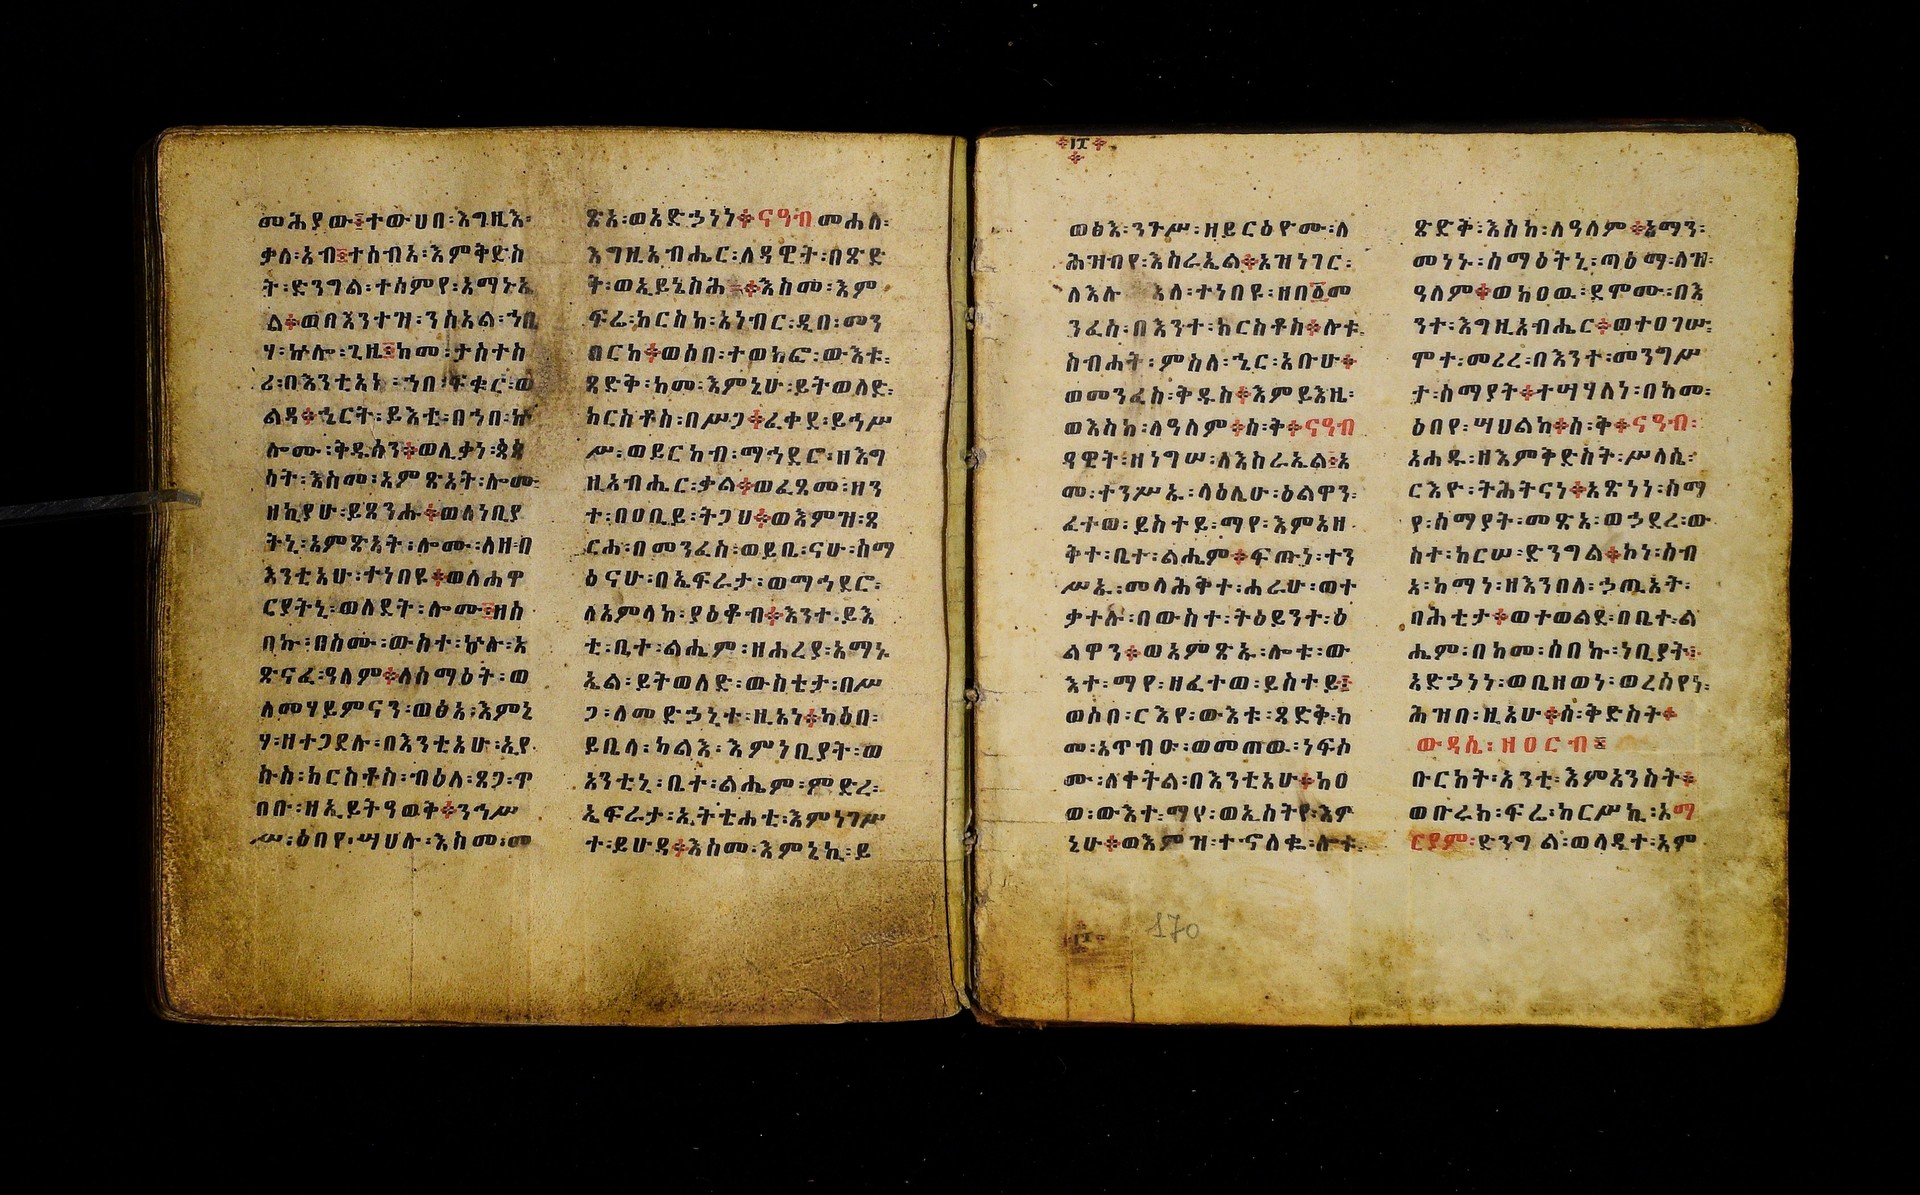 መሕያው፤ተውህበ፡እግዚእ፡
ቃለ፡አብ፤ተሰብአ፡እምቅድስ
ት፡ድንግል፡ተሰምየ፡አማኑኤ
ል፨ወበእንተዝ፡ንስአል፡ኀቢ
ሃ፡ኵሎ፡ጊዜ፤ከመ፡ታስተስ
ሪ፡በእንቲአነ፡ኀበ፡ፍቁር፡ወ
ልዳ፨ኄርት፡ይእቲ፡በኀበ፡ኵ
ሎሙ፡ቅዱሳን፨ወሊቃነ፡ጳጳ
ሳት፡እስመ፡አምጽአት፡ሎሙ፡
ዘኪያሁ፡ይጸንሑ፨ወለነቢያ
ትኒ፡አምጽአት፡ሎሙ፡ለዘ፡በ
እንቲአሁ፡ተነበዩ፨ወለሐዋ
ርያትኒ፡ወለደት፡ሎሙ፤ዘሰ
በኩ፡በስሙ፡ውስተ፡ኵሉ፡አ
ጽናፈ፡ዓለም፨ለሰማዕት፡ወ
ለመሃይምናን፡ወፅአ፡እምኔ
ሃ፡ዘተጋደሉ፡በእንቲአሁ፡ኢየ
ሱስ፡ክርስቶስ፡ብዕለ፡ጸጋ፡ጥ
በቡ፡ዘኢይትዓወቅ፨ንኅሥ
ሥ፡ዕበየ፡ሣህሉ፡እስመ፡መ
ጽአ፡ወአድኃነነ፨ናዓብ መሐለ፡
እግዚአብሔር፡ለዳዊት፡በጽድ
ቅ፡ወኢይኔስሕ፨እስመ፡እም
ፍሬ፡ከርስከ፡አነብር፡ዲበ፡መን
በርከ፨ወሶበ፡ተወክፎ፡ውእቱ፡
ጻድቅ፡ከመ፡እምኔሁ፡ይትወለድ፡
ክርስቶስ፡በሥጋ፨ፈቀደ፡ይኅሥ
ሥ፡ወይርከብ፡ማኅደሮ፡ዘእግ
ዚአብሔር፡ቃል፨ወፈጸመ፡ዘን
ተ፡በዐቢይ፡ትጋህ፨ወእምዝ፡ጸ
ርሐ፡በመንፈስ፡ወይቤ፡ናሁ፡ሰማ
ዕናሁ፡በኤፍራታ፡ወማኅደሮ፡
ለአምላከ፡ያዕቆብ፨እንተ፡ይእ
ቲ፡ቤተ፡ልሔም፡ዘሐረያ፡አማኑ
ኤል፡ይትወለድ፡ውስቴታ፡በሥ
ጋ፡ለመድኃኒተ፡ዚአነ፨ካዕበ፡
ይቤላ፡ካልእ፡እምነቢያት፡ወ
አንቲኒ፡ቤተ፡ልሔም፡ምድረ፡
ኤፍራታ፡ኢትቴሐቲ፡እምነገሥ
ተ፡ይሁዳ፨እስመ፡እምኔኪ፡ይ
፲፯
ወፅእ፡ንጉሥ፡ዘይርዕዮሙ፡ለ
ሕዝብየ፡እስራኤል፨አዝነገር፡
ለእሉ እለ፡ተነበዩ፡ዘበ፩መ
ንፈስ፡በእንተ፡ክርስቶስ፨ሎቱ
ስብሐት፡ምስለ፡ኄር፡አቡሁ፨
ወመንፈስ፡ቅዱስ፨እምይእዜ፡
ወእስከ፡ለዓለም፨ስ፡ቅ፨ናዓብ
ዳዊት፡ዘነግሠ፡ለእስራኤል፤አ
መ፡ተንሥኡ፡ላዕሌሁ፡ዕልዋን፡
ፈተወ፡ይስተይ፡ማየ፡እምአዘ
ቅተ፡ቤተ፡ልሔም፨ፍጡነ፡ተን
ሥኡ፡መላሕቅተ፡ሐራሁ፡ወተ
ቃተሉ፡በውስተ፡ትዕይንተ፡ዕ
ልዋን፨ወአምጽኡ፡ሎቱ፡ው
እተ፡ማየ፡ዘፈተወ፡ይስተይ፤
ወሶበ፡ርእየ፡ውእቱ፡ጻድቅ፡ከ
መ፡አጥብዑ፡ወመጠዉ፡ነፍሶ
ሙ፡ለቀትል፡በእንቲአሁ፨ከዐ
ወ፡ውእተ፡ማየ፡ወኢሰትየ፡እም
ኔሁ፨ወእምዝ፡ተኆለቈ፡ሎቱ
ጽድቅ፡እስከ፡ለዓለም፨አማን፡
መነኑ፡ሰማዕትኒ፡ጣዕማ፡ለዝ፡
ዓለም፨ወከዐዉ፡ደሞሙ፡በእ
ንተ፡እግዚአብሔር፨ወተዐገሡ፡
ሞተ፡መሪረ፡በእንተ፡መንግሥ
ተ፡ሰማያት፨ተሣሃለነ፡በከመ፡
ዕበየ፡ሣህልከ፨ስ፡ቅ፨ናዓብ፡
አሐዱ፡ዘእምቅድስት፡ሥላሴ፡
ርእዮ፡ትሕትናነ፨አጽነነ፡ሰማ
የ፡ሰማያት፡መጽአ፡ወኃደረ፡ው
ስተ፡ከርሠ፡ድንግል፨ኮነ፡ሰብ
አ፡ከማነ፡ዘእንበለ፡ኃጢአት፡
በሕቲታ፨ወተወልደ፡በቤተ፡ል
ሔም፡በከመ፡ሰበኩ፡ነቢያት፤
አድኃነነ፡ወቤዘወነ፡ወረሰየነ፡
ሕዝበ፡ዚአሁ፨ስ፡ቅድስት፨
ውዳሴ፡ዘዐርብ፤
ቡርክት፡አንቲ፡እምአንስት፨
ወቡሩክ፡ፍሬ፡ከርሥኪ፡አማ
ርያም፡ድንግል፡ወላዲተ፡አም
170
፲፯